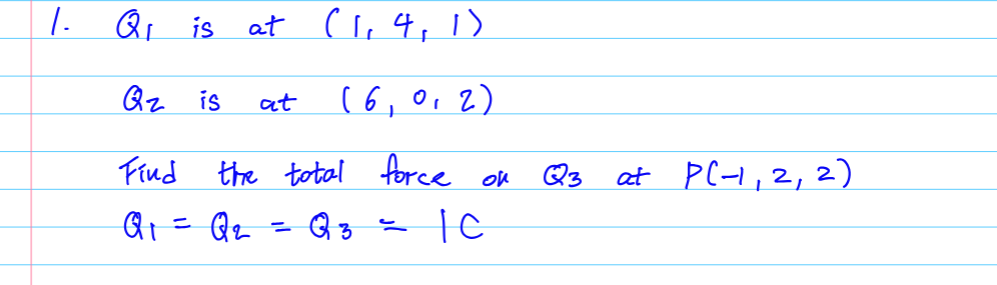 1. Q1 is at (1, 4, 1)
Q2 is at (6, 0, 2)
Find the total force on Q3 at P(-1, 2, 2)
Q1 = Q2 = Q3 = 1C